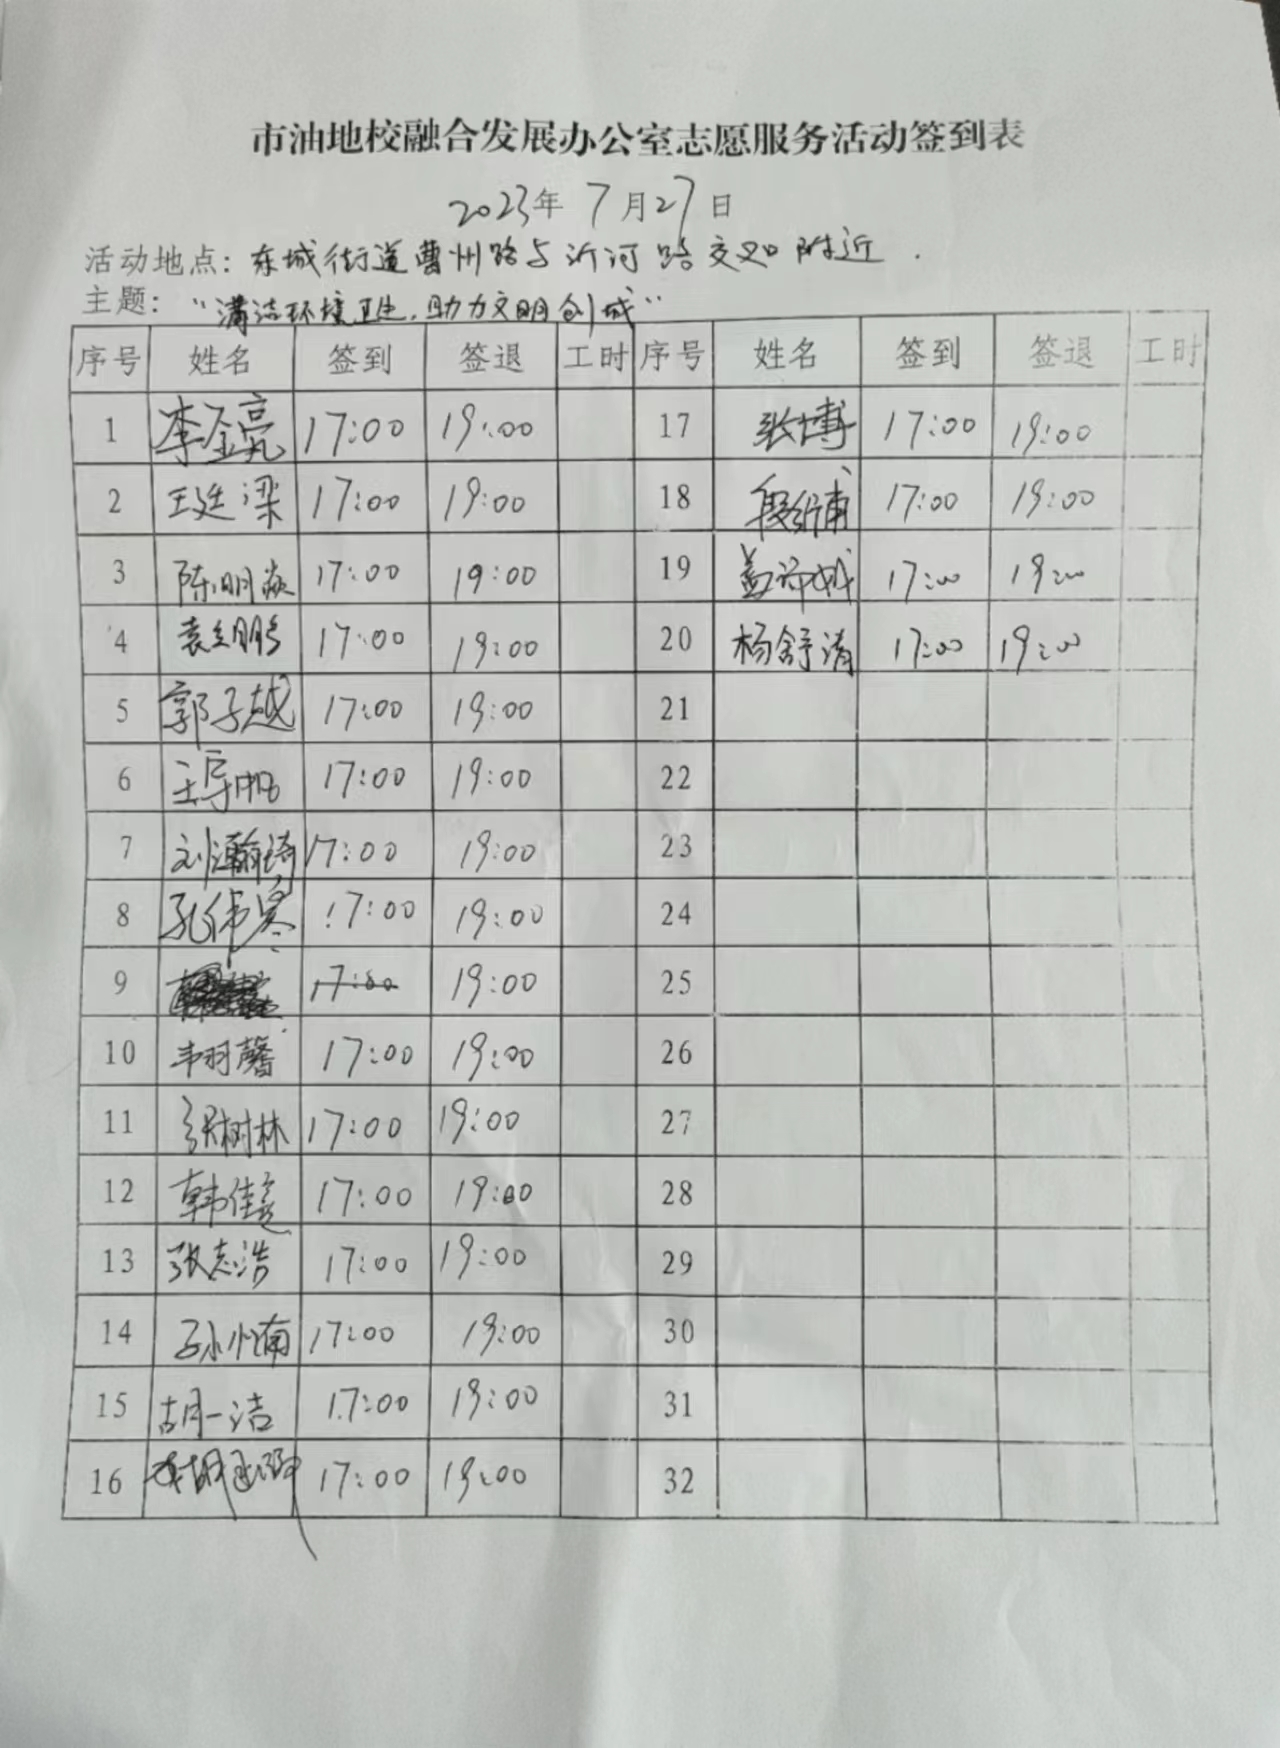 市油地校融合发展办公室志愿服务活动签到表
2023年 7月27日
活动地点：东城街道曹州路与沂河路交叉口附近.
主题：“清洁环境卫生,助力文明创城”
序号 姓名 签到 签退 工时 序号 姓名 签到 签退 工时
1 李金亮 17:00 19:00 17 张博 17:00 19:00
2 王廷梁 17:00 19:00 18 17:00 19:00
3 陈明焱 17:00 19:00 19 17:00 19:00
4 17:00 19:00 20 杨舒清 17:00 19:00
5 郭子越 17:00 19:00 21
6 17:00 19:00 22
7 刘瀚琦 17:00 19:00 23
8 17:00 19:00 24
9 17:00 19:00 25
10 韦羽馨 17:00 19:00 26
11 张树林 17:00 19:00 27
12 17:00 19:00 28
13 张志浩 17:00 19:00 29
14 17:00 19:00 30
15 胡一洁 17:00 19:00 31
16 17:00 19:00 32